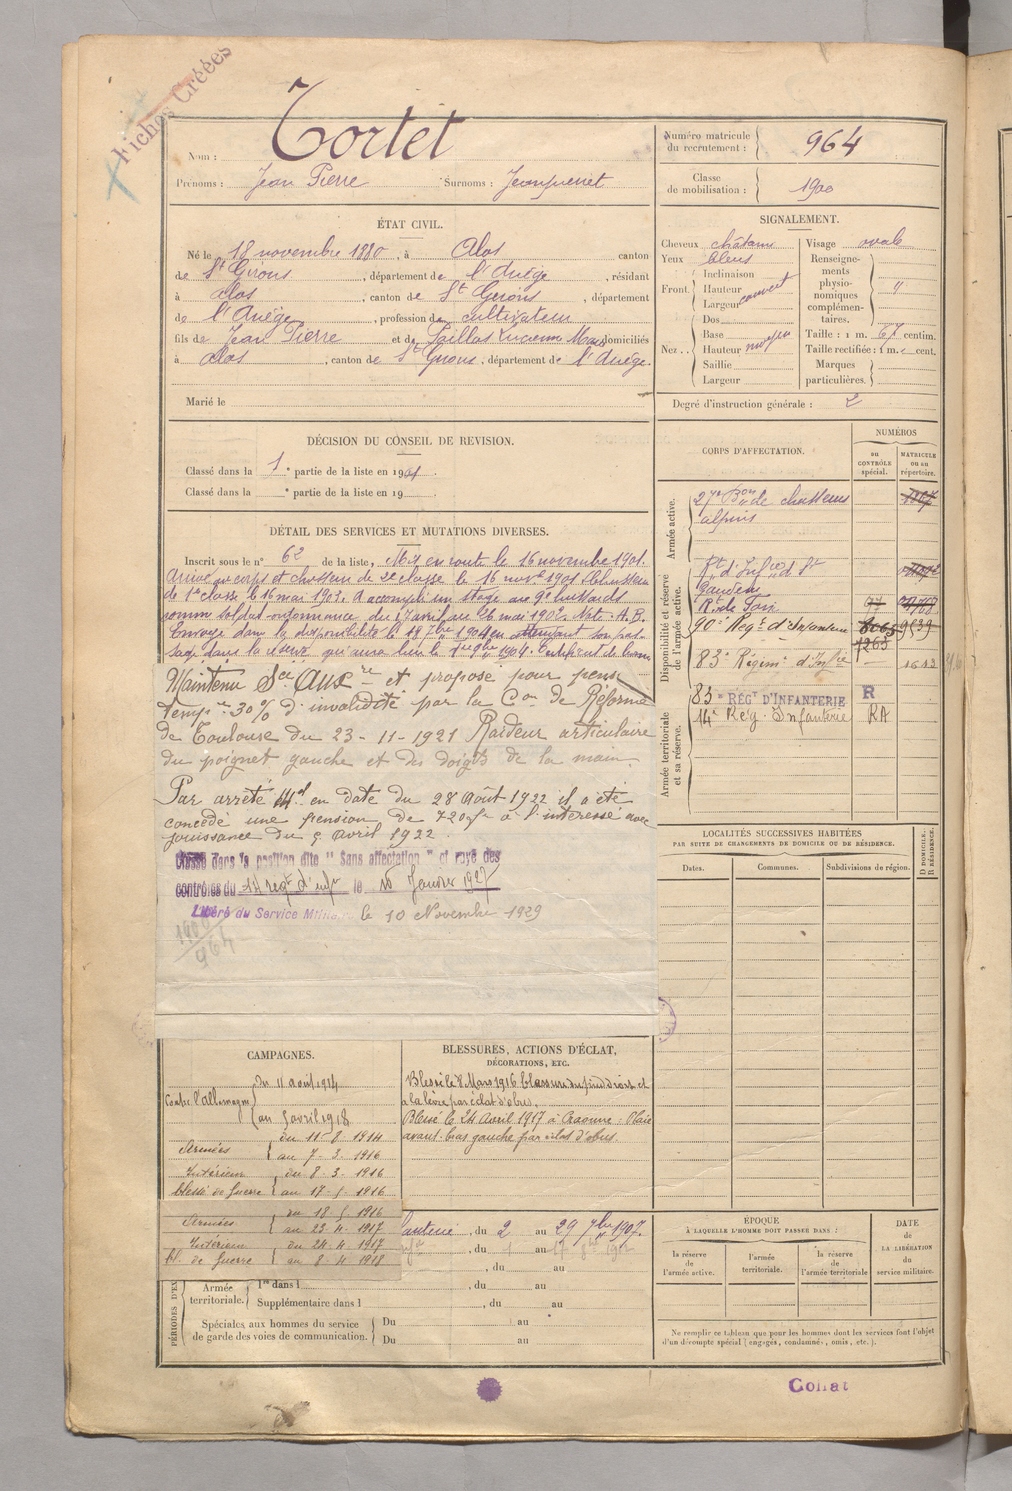 Fiches Créées
Nom : Tortet
Prénoms : Jean Pierre Surnoms :
Numéro matricule du recrutement : 964
Classe de mobilisation : 1900
ÉTAT CIVIL.
Né le 18 novembre 1880, à Alos canton
de St Girons, département de l'Ariège, résidant
à Alos, canton de St Girons, département
de l'Ariège, profession de cultivateur
fils de Jean Pierre et de Lucienne Marie domiciliés
à Alos, canton de St Girons, département de l'Ariège.
Marié le
SIGNALEMENT.
Cheveux châtains
Yeux bleus
Front. Inclinaison
Hauteur
Largeur couvert
Nez.. Dos
Base
Hauteur moyen
Saillie
Largeur
Visage ovale
Renseignements physionomiques complémentaires. "
Taille : 1 m. 67 centim.
Taille rectifiée : 1 m. cent.
Marques particulières.
Degré d'instruction générale : 2
DÉCISION DU CONSEIL DE REVISION.
Classé dans la 1e partie de la liste en 1901.
Classé dans la e partie de la liste en 19
DÉTAIL DES SERVICES ET MUTATIONS DIVERSES.
Inscrit sous le n° 62 de la liste, Mis en route le 16 novembre 1901.
Arrivé au corps et chasseur de 2e classe le 16 novbre 1901
de 1e classe le 16 mai 1903. A accompli un stage au 9e hussards
comme soldat ordonnance du 17 avril au 26 mai 1902. Note A.B.
Envoyé dans la disponibilité le 19 7bre 1904 en attendant son pas-
sage dans la réserve qui aura lieu le 1er 9bre 1904. Certificat de bonne
Maintenu Sce Auxre et proposé pour pens
tempre 30% d'invalidité par la Con de Réforme
de Toulouse du 23-11-1921 Raideur articulaire
du poignet gauche et des doigts de la main.
Par arrêté Mel en date du 28 Août 1922 il a été
concédé une pension de 720f à l'intéressé avec
jouissance du 5 avril 1922.
Classé dans la position dite "Sans affectation" et rayé des
contrôles du 14 regt d'infie le 15 Janvier 1927
Libéré du Service Militaire le 10 Novembre 1929
1900
964
CORPS D'AFFECTATION.
NUMÉROS
AU CONTRÔLE spécial.
MATRICULE ou au répertoire.
Armée active.
27e Bon de chasseurs
alpins
Disponibilité et réserve de l'armée active.
Rt d'Infie de St
Gaudens
Rt de Foix
90e Regt d'Infanterie
83e Régimt d'Infie
1263
Armée territoriale et sa réserve.
83e RÉGt D'INFANTERIE R
14e Rég. Infanterie RA
LOCALITÉS SUCCESSIVES HABITÉES
PAR SUITE DE CHANGEMENTS DE DOMICILE OU DE RÉSIDENCE.
Dates. Communes. Subdivisions de région. D DOMICILE. R RÉSIDENCE.
CAMPAGNES.
Contre l'Allemagne du 11 août 1914
au 5 avril 1918
Armées du 11-8-1914
au 7-3-1916
Intérieur du 8-3-1916
blessé de Guerre au 17-5-1916
Armées du 18-5-1916
au 23-4-1917
Intérieur du 24-4-1917
bl. de Guerre au 8-4-1918
BLESSURES, ACTIONS D'ÉCLAT,
DÉCORATIONS, ETC.
Blessé le 8 Mars 1916 blessure du pied droit et
à la lèvre par éclat d'obus.
Blessé le 24 Avril 1917 à Craonne - Plaie
avant-bras gauche par éclat d'obus.
fanterie, du 2 au 29 7bre 1907.
, du au
, du au
PÉRIODES D'EX
Armée territoriale. 1re dans l , du au
Supplémentaire dans l , du au
Spéciales aux hommes du service
de garde des voies de communication. Du au
Du au
ÉPOQUE
À LAQUELLE L'HOMME DOIT PASSER DANS :
la réserve de l'armée active.
l'armée territoriale.
la réserve de l'armée territoriale
DATE DE LA LIBÉRATION du service militaire.
Ne remplir ce tableau que pour les hommes dont les services font l'objet
d'un décompte spécial (engagés, condamnés, omis, etc.).